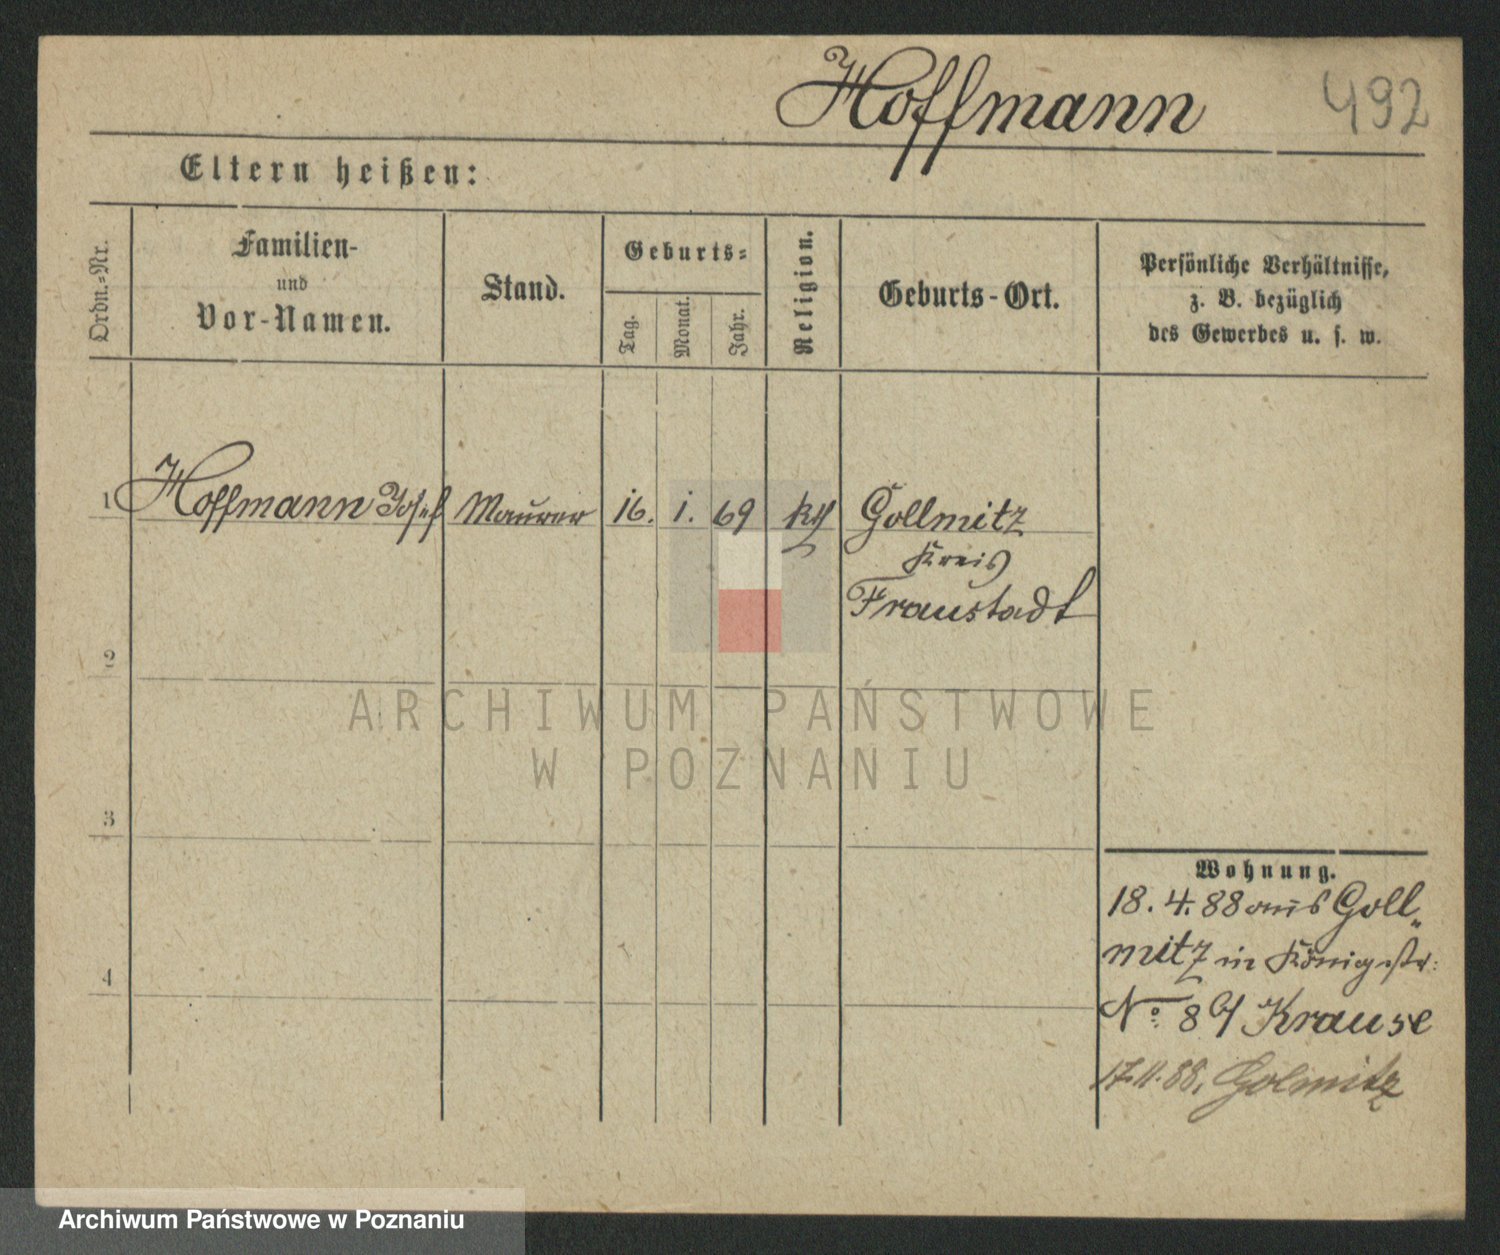 Hoffmann 492
Eltern heißen:
Ordn.-Nr.
Familien-
und
Vor-Namen.
Stand.
Geburts-
Tag.
Monat.
Jahr.
Religion.
Geburts-Ort.
Persönliche Verhältnisse,
z. B. bezüglich
des Gewerbes u. s. w.
1 Hoffmann Josef Maurer 16. 1. 69 kth Gollmitz
Kreis
Fraustadt
2
3
4
Wohnung.
18.4.88 aus Goll„
mitz in Königstr:
No: 8 b/ Krause
17.11.88, Golmitz
ARCHIWUM PAŃSTWOWE
W POZNANIU
Archiwum Państwowe w Poznaniu